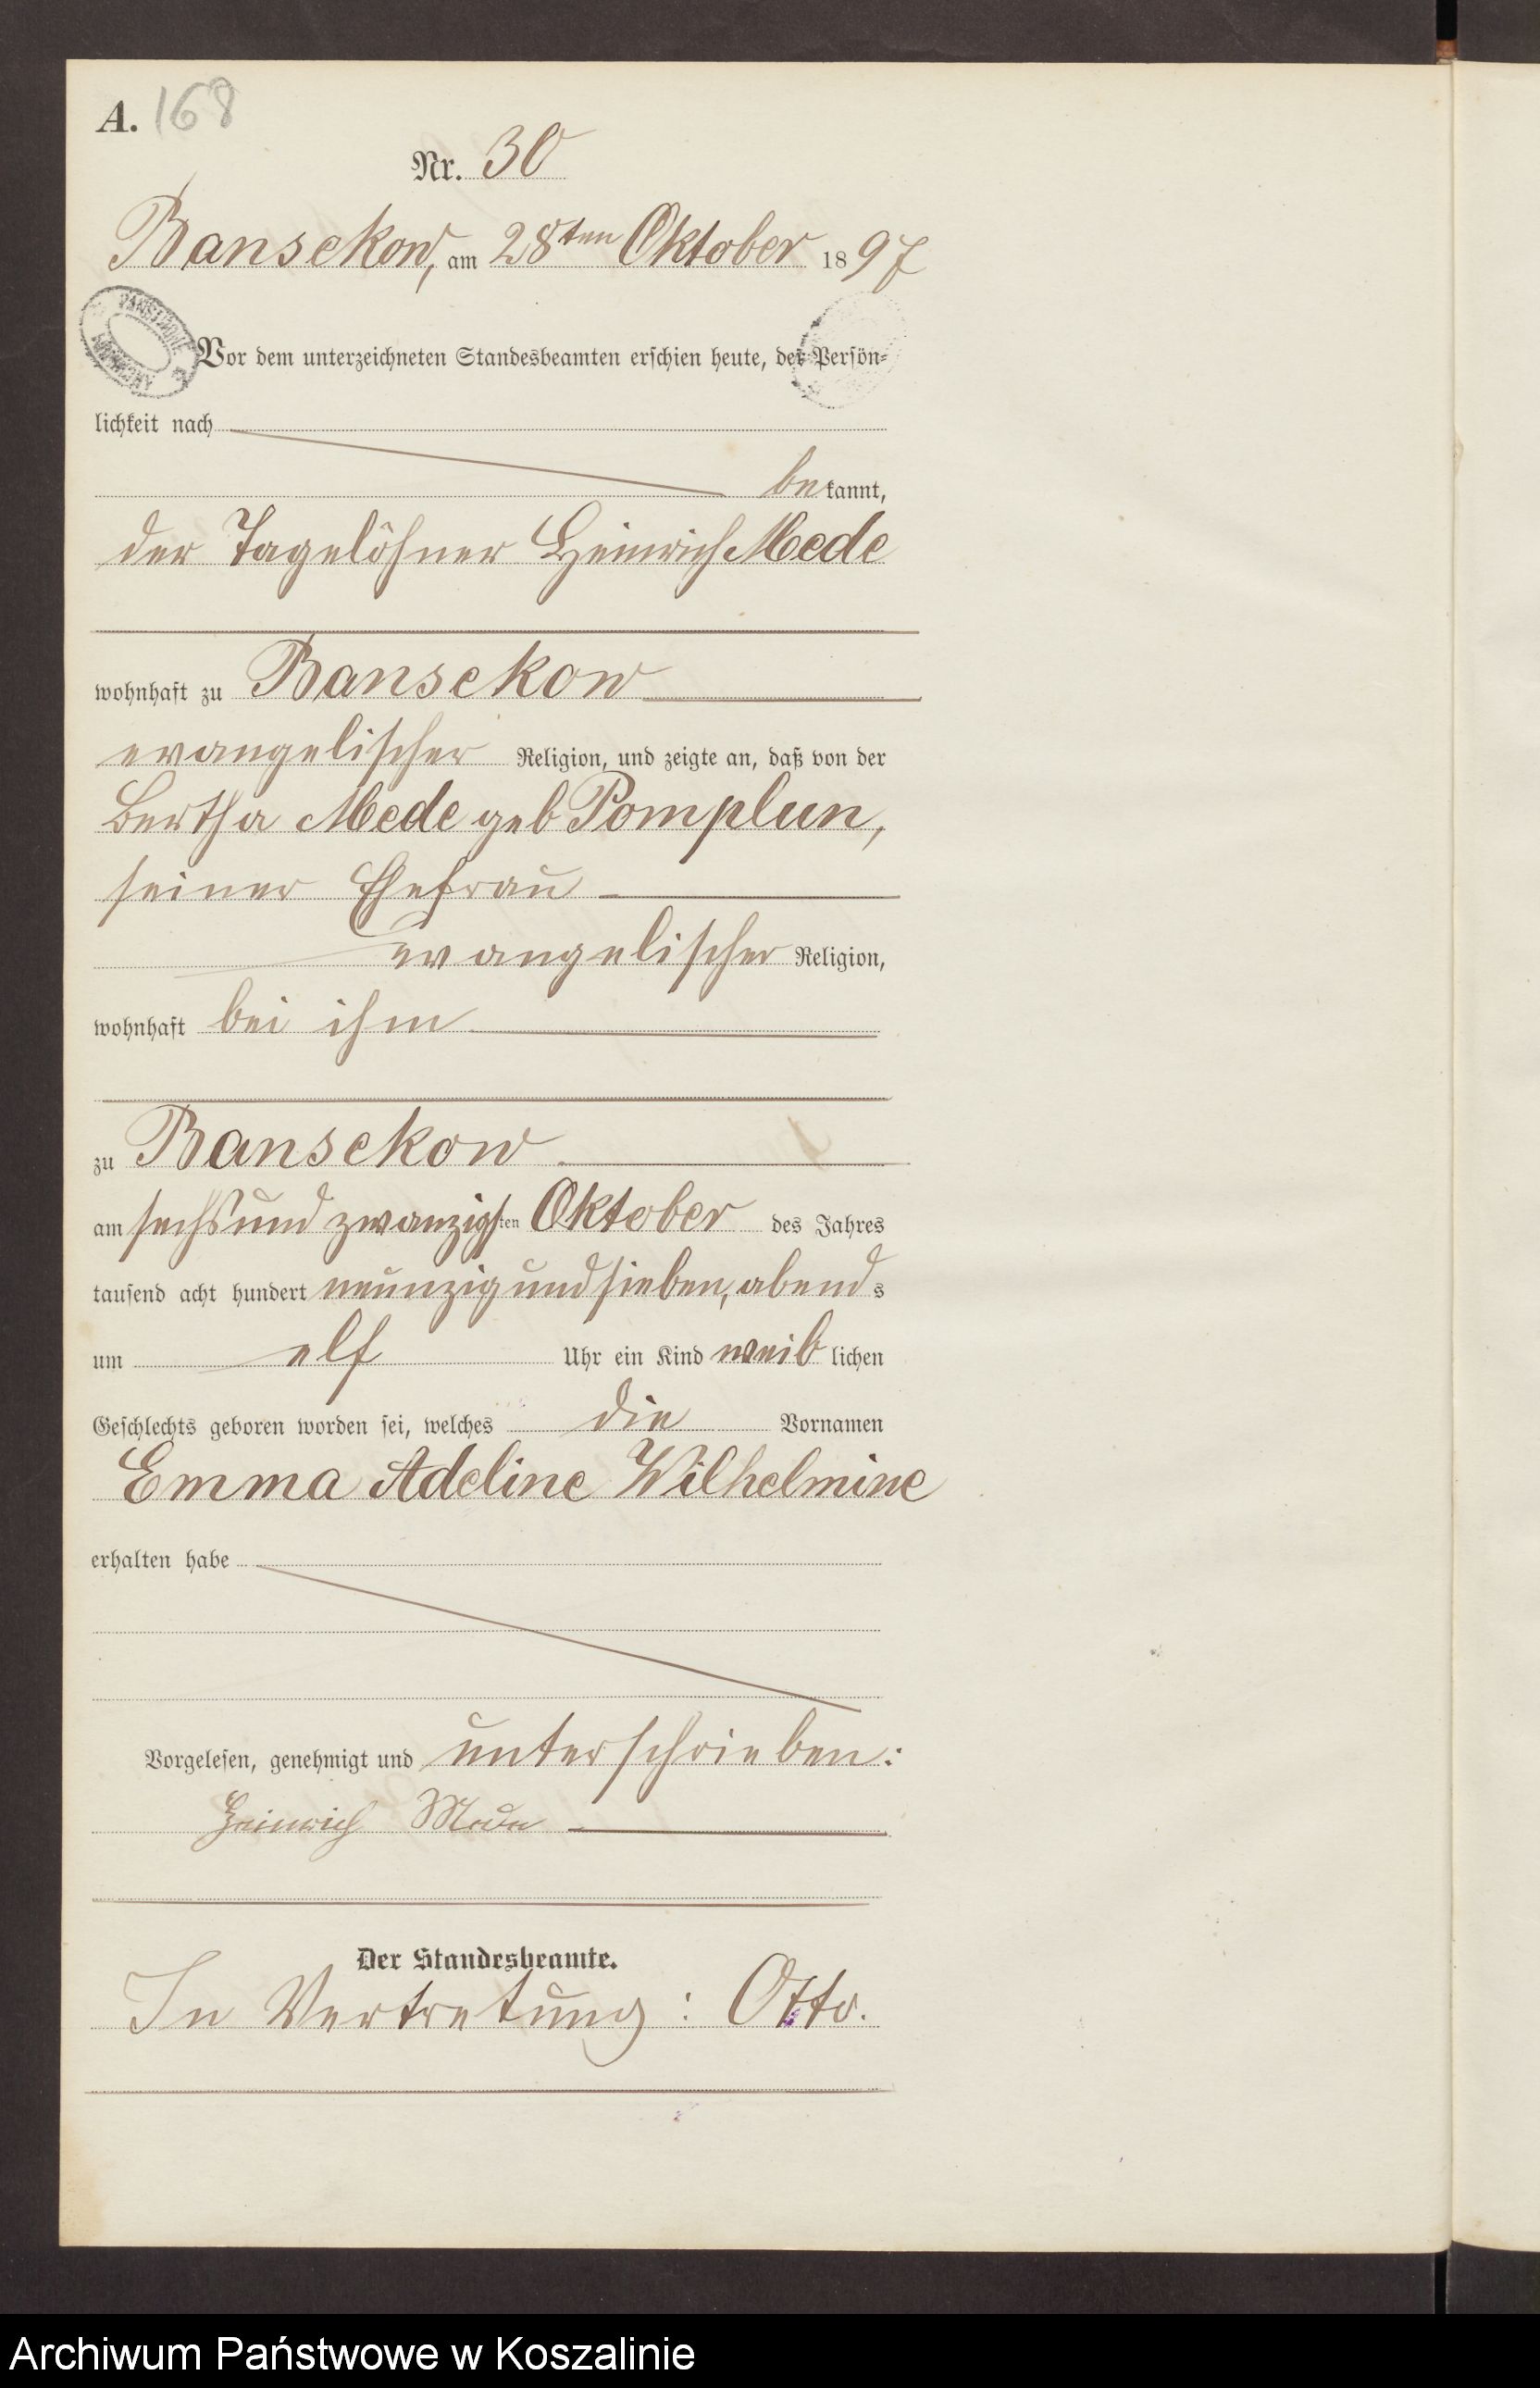 A. 168
Nr. 30
Bansekow, am 28ten Oktober 1897
PAŃSTWOWE
Vor dem unterzeichneten Standesbeamten erschien heute, der Persön-
lichkeit nach
bekannt,
der Tagelöhner Heinrich Mede
wohnhaft zu Bansekow
evangelischer Religion, und zeigte an, daß von der
Bertha Mede geb Pomplun,
seiner Ehefrau
evangelischer Religion,
wohnhaft bei ihm
zu Bansekow
am sechsundzwanzigsten Oktober des Jahres
tausend acht hundert neunzig und sieben, abends
um elf Uhr ein Kind weiblichen
Geschlechts geboren worden sei, welches die Vornamen
Emma Adeline Wilhelmine
erhalten habe
Vorgelesen, genehmigt und unterschrieben:
Heinrich Mede
Der Standesbeamte.
In Vertretung: Otto.
Archiwum Państwowe w Koszalinie